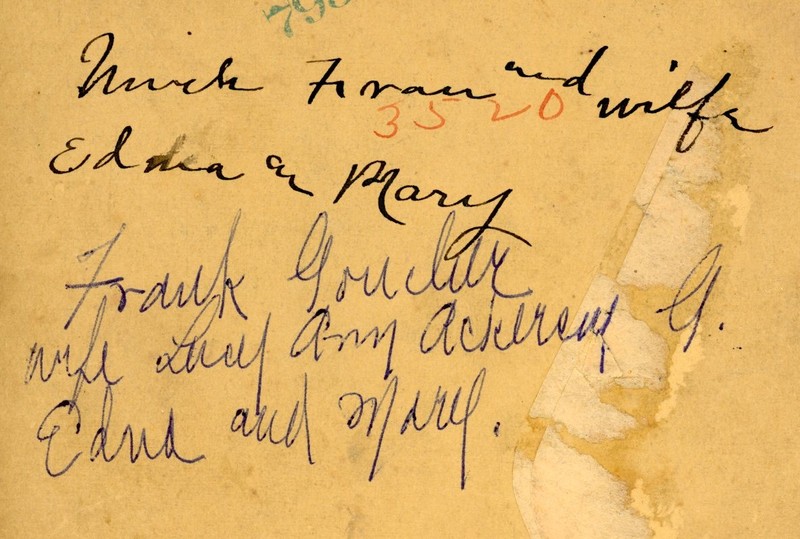 Unck Fran and wilfe
3520
Edna an Mary
Frank
wife Lucy Ann Ackerson G.
Edna and Mary.